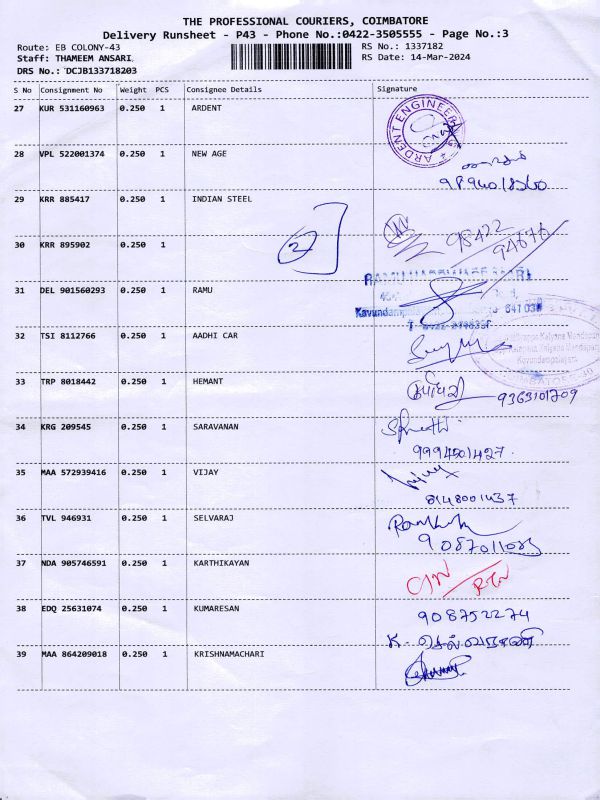 THE PROFESSIONAL COURIERS, COIMBATORE
Delivery Runsheet - P43 - Phone No.:0422-3505555 - Page No.:3
Route: EB COLONY-43 RS No.: 1337182
Staff: THAMEEM ANSARI. RS Date: 14-Mar-2024
DRS No.: DCJB133718203
S No Consignment No Weight PCS Consignee Details Signature
27 KUR 531160963 0.250 1 ARDENT
ARDENT ENGINEERING
28 VPL 522001374 0.250 1 NEW AGE
29 KRR 885417 0.250 1 INDIAN STEEL
2
98422
94676
30 KRR 895902 0.250 1
31 DEL 901560293 0.250 1 RAMU
RAMU
641 030
32 TSI 8112766 0.250 1 AADHI CAR
Kalyana Mandapam
33 TRP 8018442 0.250 1 HEMANT
9363101709
34 KRG 209545 0.250 1 SARAVANAN
9994501427
35 MAA 572939416 0.250 1 VIJAY
8148001437
36 TVL 946931 0.250 1 SELVARAJ
37 NDA 905746591 0.250 1 KARTHIKAYAN
38 EDQ 25631074 0.250 1 KUMARESAN
908752274
K. செல்வராணி
39 MAA 864209018 0.250 1 KRISHNAMACHARI